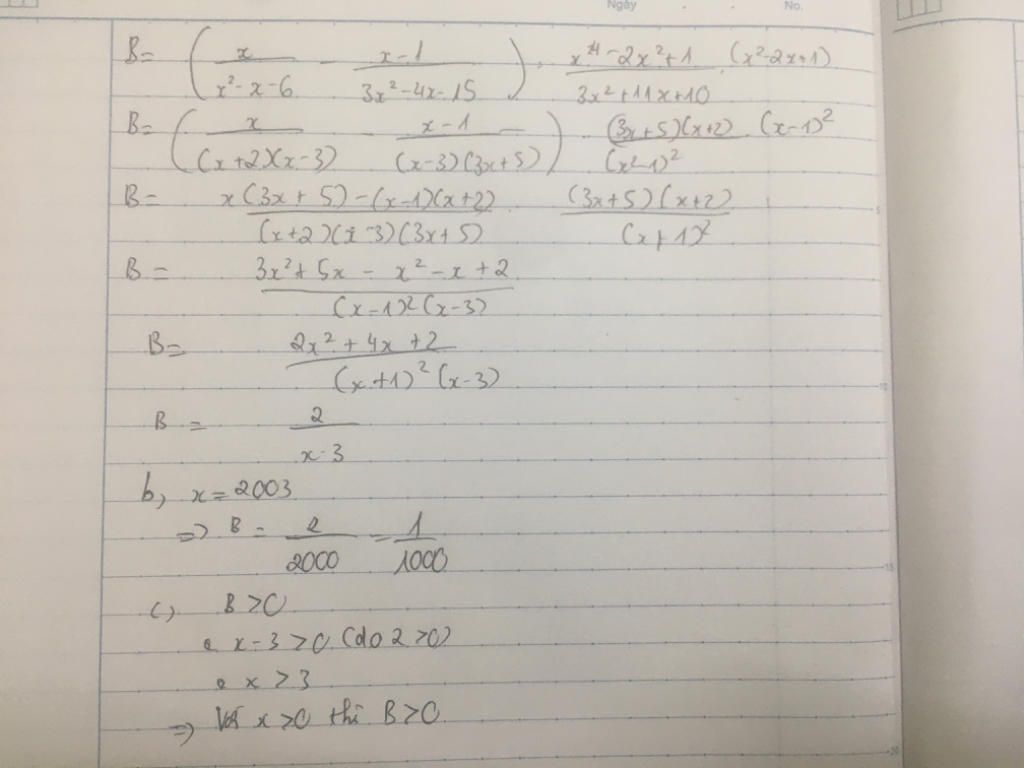 Ngày . . No.
B= ( x / (x²-x-6) - (x-1) / (3x²-4x-15) ) . (x⁴-2x²+1) / (3x²+11x+10) . (x²-2x+1)
B= ( x / ((x+2)(x-3)) - (x-1) / ((x-3)(3x+5)) ) . ((3x+5)(x+2)) / (x²-1)² . (x-1)²
B= (x(3x+5)-(x-1)(x+2)) / ((x+2)(x-3)(3x+5)) . ((3x+5)(x+2)) / (x+1)²
B= (3x²+5x-x²-x+2) / ((x-1)²(x-3))
B= (2x²+4x+2) / ((x+1)²(x-3))
B= 2 / (x-3)
b, x=2003
=> B= 2/2000 = 1/1000
c, B>0
x-3>0 (do 2>0)
x>3
=> Với x>0 thì B>0